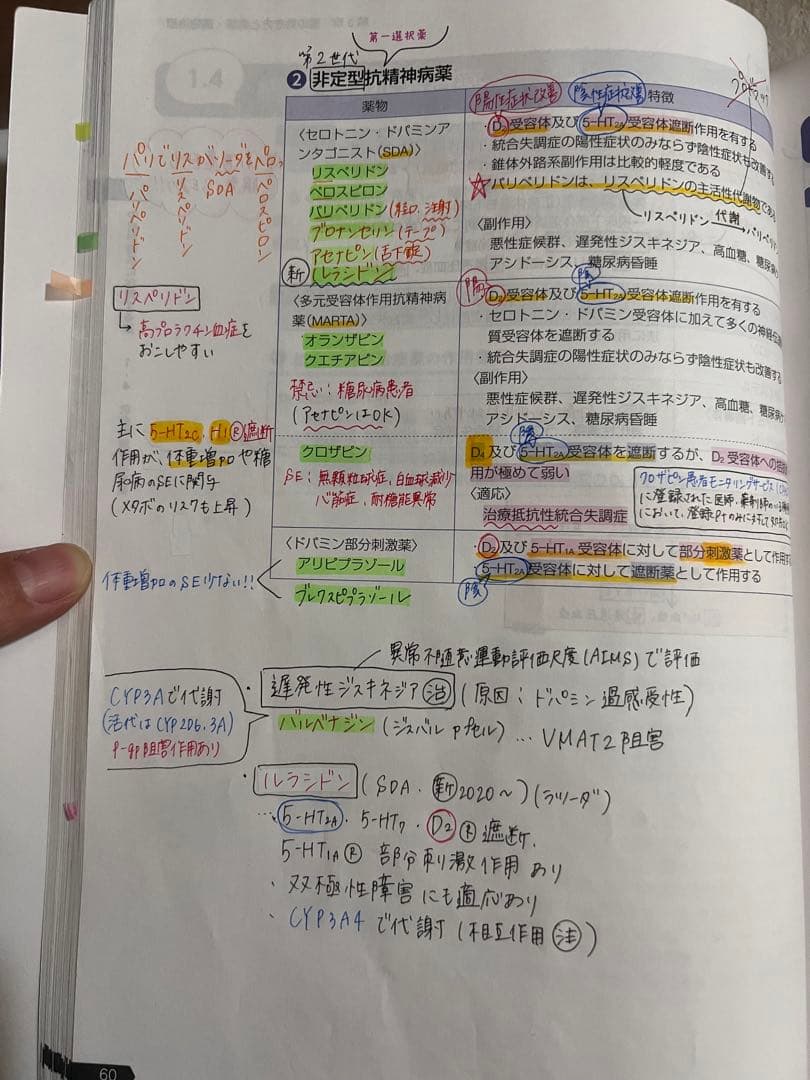 第一選択薬
第2世代
❷ 非定型抗精神病薬
1.4
陽性症状改善
陰性症状改善
薬物
特徴
〈セロトニン・ドパミンアンタゴニスト(SDA)〉
リスペリドン
ペロスピロン
パリペリドン(経口、注射)
ブロナンセリン(テープ)
アセナピン(舌下錠)
新 ルラシドン
・D2受容体及び5-HT2A受容体遮断作用を有する
・統合失調症の陽性症状のみならず陰性症状も改善する
・錐体外路系副作用は比較的軽度である
☆パリペリドンは、リスペリドンの主活性代謝物である
リスペリドン 代謝→ パリペリ
〈副作用〉
悪性症候群、遅発性ジスキネジア、高血糖、糖尿病
アシドーシス、糖尿病昏睡
パリでリスがソーダをペロッ
パリペリドン
リスペリドン
SDA
ペロスピロン
リスペリドン
→ 高プロラクチン血症を
おこしやすい
〈多元受容体作用抗精神病
薬(MARTA)〉
オランザピン
クエチアピン
禁忌:糖尿病患者
(アセナピンはOK)
陽
陰
・D2受容体及び5-HT2A受容体遮断作用を有する
・セロトニン・ドパミン受容体に加えて多くの神経伝達
質受容体を遮断する
・統合失調症の陽性症状のみならず陰性症状も改善
〈副作用〉
悪性症候群、遅発性ジスキネジア、高血糖、糖尿病
アシドーシス、糖尿病昏睡
主に5-HT2C、H1 R 遮断
作用が、体重増加や糖
尿病のSEに関与
(メタボのリスクも上昇)
クロザピン
SE:無顆粒球症、白血球減少
心筋症、耐糖能異常
陰
D4及び5-HT2A受容体を遮断するが、D2受容体への
用が極めて弱い
〈適応〉
治療抵抗性統合失調症
クロザピン患者モニタリングサービス
に登録された医師・薬剤師のいる
において、登録Ptのみに対して
〈ドパミン部分刺激薬〉
アリピプラゾール
ブレクスピプラゾール
体重増加のSE少ない!!
・D2及び5-HT1A受容体に対して部分刺激薬として作用
・5-HT2A受容体に対して遮断薬として作用する
陰
異常不随意運動評価尺度(AIMS)で評価
・遅発性ジスキネジア 治 (原因:ドパミン過感受性)
バルベナジン (ジスバルcapsel)…VMAT2阻害
CYP3Aで代謝
(活代はCYP2D6、3A)
P-gp阻害作用あり
・ルラシドン (SDA・新 2020〜)(ラツーダ)
…5-HT2A・5-HT7・D2 R 遮断、
5-HT1A R 部分刺激作用あり
・双極性障害にも適応あり
・CYP3A4で代謝(相互作用 注)
60